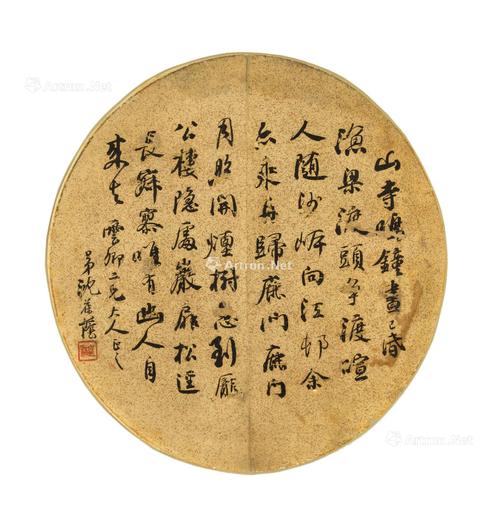 山寺鳴鐘晝已昏
漁梁渡頭爭渡喧
人隨沙岸向江邨余
亦乘舟歸鹿門鹿門
月照開煙樹忽到龐
公棲隱處巖扉松逕
長寂寥唯有幽人自
來去 雲卿二兄大人正之
弟沈葆
Artron.Net
Artron.Net
Artron.Net